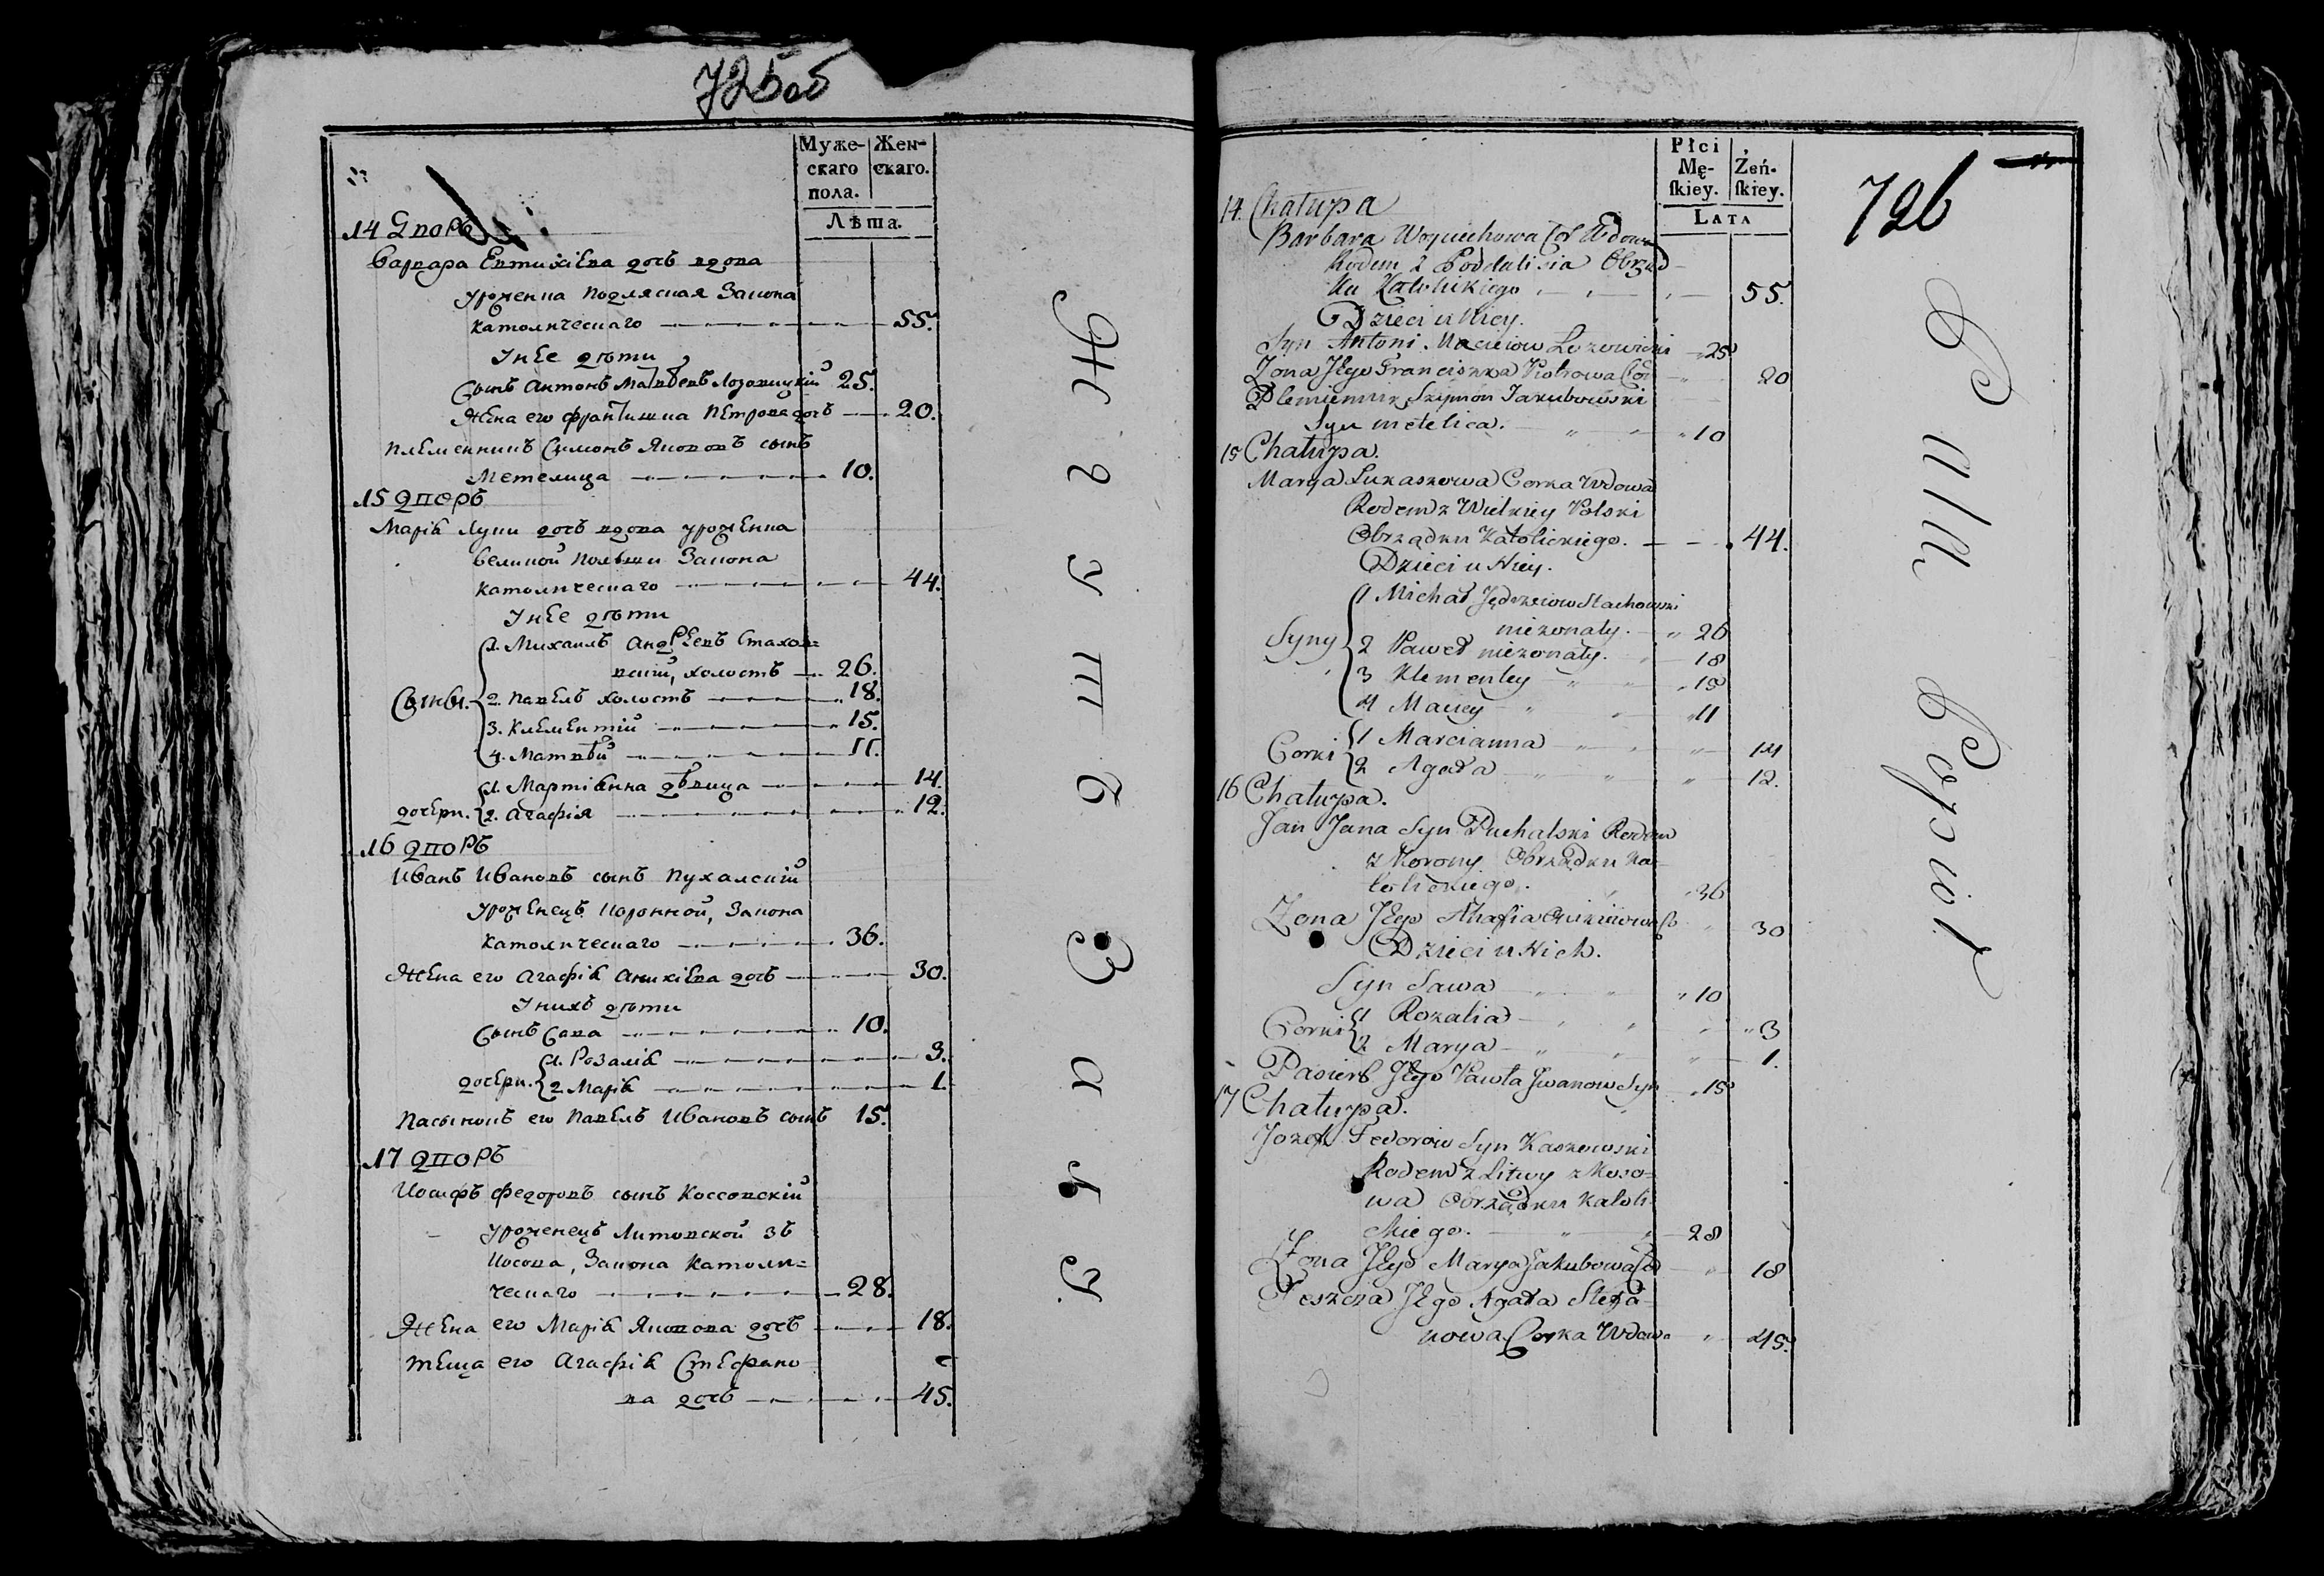 725 об
Муже-
скаго
пола.
Жен-
скаго.
Лѣта.
14 Дворъ
Варвара Евтихіева дочь вдова
Уроженка Подляская Закона
католическаго 55.
У нее дѣти
Сынъ Антонъ Матвѣевъ Лозовицкій 25.
Жена его Францишка Петрова дочь 20.
Племенникъ Симонъ Яковъ сынъ
Метелица 10.
15 Дворъ
Маріа Луки дочь вдова уроженка
великой Польши Закона
католическаго 44.
У нее дѣти
Сыны.
1. Михаилъ Андреевъ Стахов=
скій, холостъ 26.
2. Павелъ холостъ 18.
3. Клементій 15.
4. Матвѣй 11.
дочери.
1. Мартіанна дѣвица 14.
2. Агафія 12.
16 Дворъ
Иванъ Ивановъ сынъ Пухалскій
уроженецъ Коронной, Закона
католическаго 36.
Жена его Агафіа Аникіева дочь 30.
У нихъ дѣти
Сынъ Сава 10.
дочери.
1. Розаліа 3.
2. Маріа 1.
Пасынокъ его Павелъ Ивановъ сынъ 15.
17 Дворъ
Иосифъ Федоровъ сынъ Коссовскій
Уроженецъ Литовской зъ
Косова, Закона католи=
ческаго 28.
Жена его Маріа Яковова дочь 18.
теща его Агафіа Стефано
ва дочь 45.
Ж д у т ъ
Płci
Mę-
ſkiey.
Żeń-
ſkiey.
Lata
726
14. Chałupa
Barbara Woyciechowa Cor Wdowa
Rodem z Poddalisia Obrząd-
ku Katolickiego 55.
Dzieci u Niey.
Syn Antoni Macieiow Lozowicki 25
Żona Jego Franciszka Piotrowa Cor 20
Plemiennik Szymon Jakubowski
Syn metelica. 10
15 Chałupa.
Marya Łukaszowa Corka Wdowa
Rodem z Wielkiey Polski
Obrządku Katolickiego. 44.
Dzieci u Niey.
Syny
1 Michał Jędrzeiow Stachowski
nieżonaty. 26
2 Paweł nieżonaty. 18
3 Klementey 15
4 Maciey 11
Corki
1 Marcianna 14
2 Agata 12.
16 Chałupa.
Jan Jana Syn Puchalski Rodem
z Korony Obrządku Ka-
tolickiego. 36
Żona Jego Ahafia 30
Dzieci u Nich.
Syn Sawa 10
Corki
1 Rozalia 3
2 Marya 1.
Pasierb Jego Pawła Jwanow Syn 15
17 Chałupa.
Jozef Fedorow Syn Kaszowski
Rodem z Litwy z Koso-
wa Obrządku Katoli-
ckiego. 28
Żona Jego Marya Jakubowa Cor 18
Teszcza Jego Agata Stefa-
nowa Corka Wdowa 45.